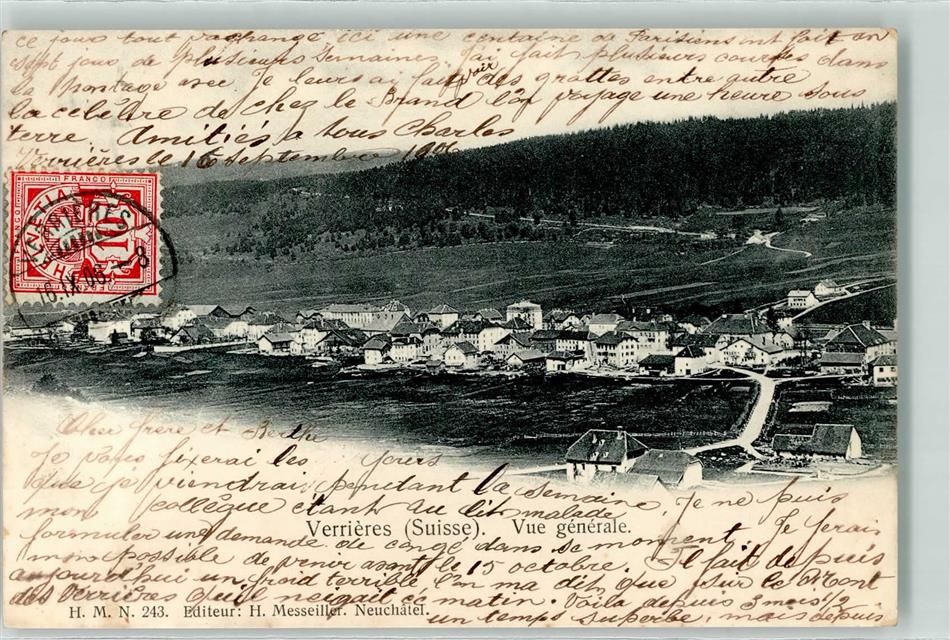 ce jour tout rachangé ici une centaine de Parisiens ont fait un
sept jour de plusieurs semaines J'ai fait plusieurs courses dans
la montagne avec Je leurs ai fait voir des grottes entre autre
la célèbre de chez le Brand l'on voyage une heure sous
terre. Amitiés a tous Charles
Verrières le 16 Septembre 1906
FRANCO
HELVETIA
10
VERRIERES
16.IX.06.-8
Cher frère et Berthe
Je vous fixerai les jours
que je viendrai pendant la semaine, Je ne puis
mon collègue étant au lit malade
Verrières (Suisse). Vue générale.
formuler une demande de congé dans se moment. Je ferais
mon possible de venir avant le 15 octobre. Il fait depuis
aujourd'hui un froid terrible l'on ma dit que sur le Mont
des Verrières qu'il neigait ce matin. Voila depuis 3 mois 1/2
H. M. N. 243. Editeur: H. Messeiller. Neuchâtel.
un temps superbe, mais depuis